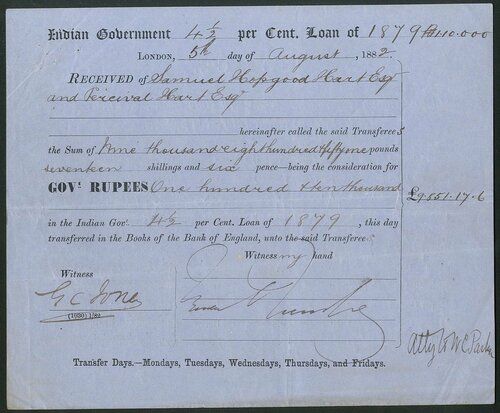 Indian Government 4½ per Cent. Loan of 1879 R110.000
London, 5th day of August, 1882.
Received of Samuel Hopgood Hart Esqr
and Percival Hart Esqr
hereinafter called the said Transferees
the Sum of Nine thousand eight hundred & fifty one pounds
seventeen shillings and six pence—being the consideration for
GOVt RUPEES One hundred & ten thousand
£9851.17.6
in the Indian Govt. 4½ per Cent. Loan of 1879, this day
transferred in the Books of the Bank of England, unto the said Transferees
Witness my hand
Witness
G C Jones
(1030) 1/82
Atty to W C Parker
Transfer Days.—Mondays, Tuesdays, Wednesdays, Thursdays, and Fridays.